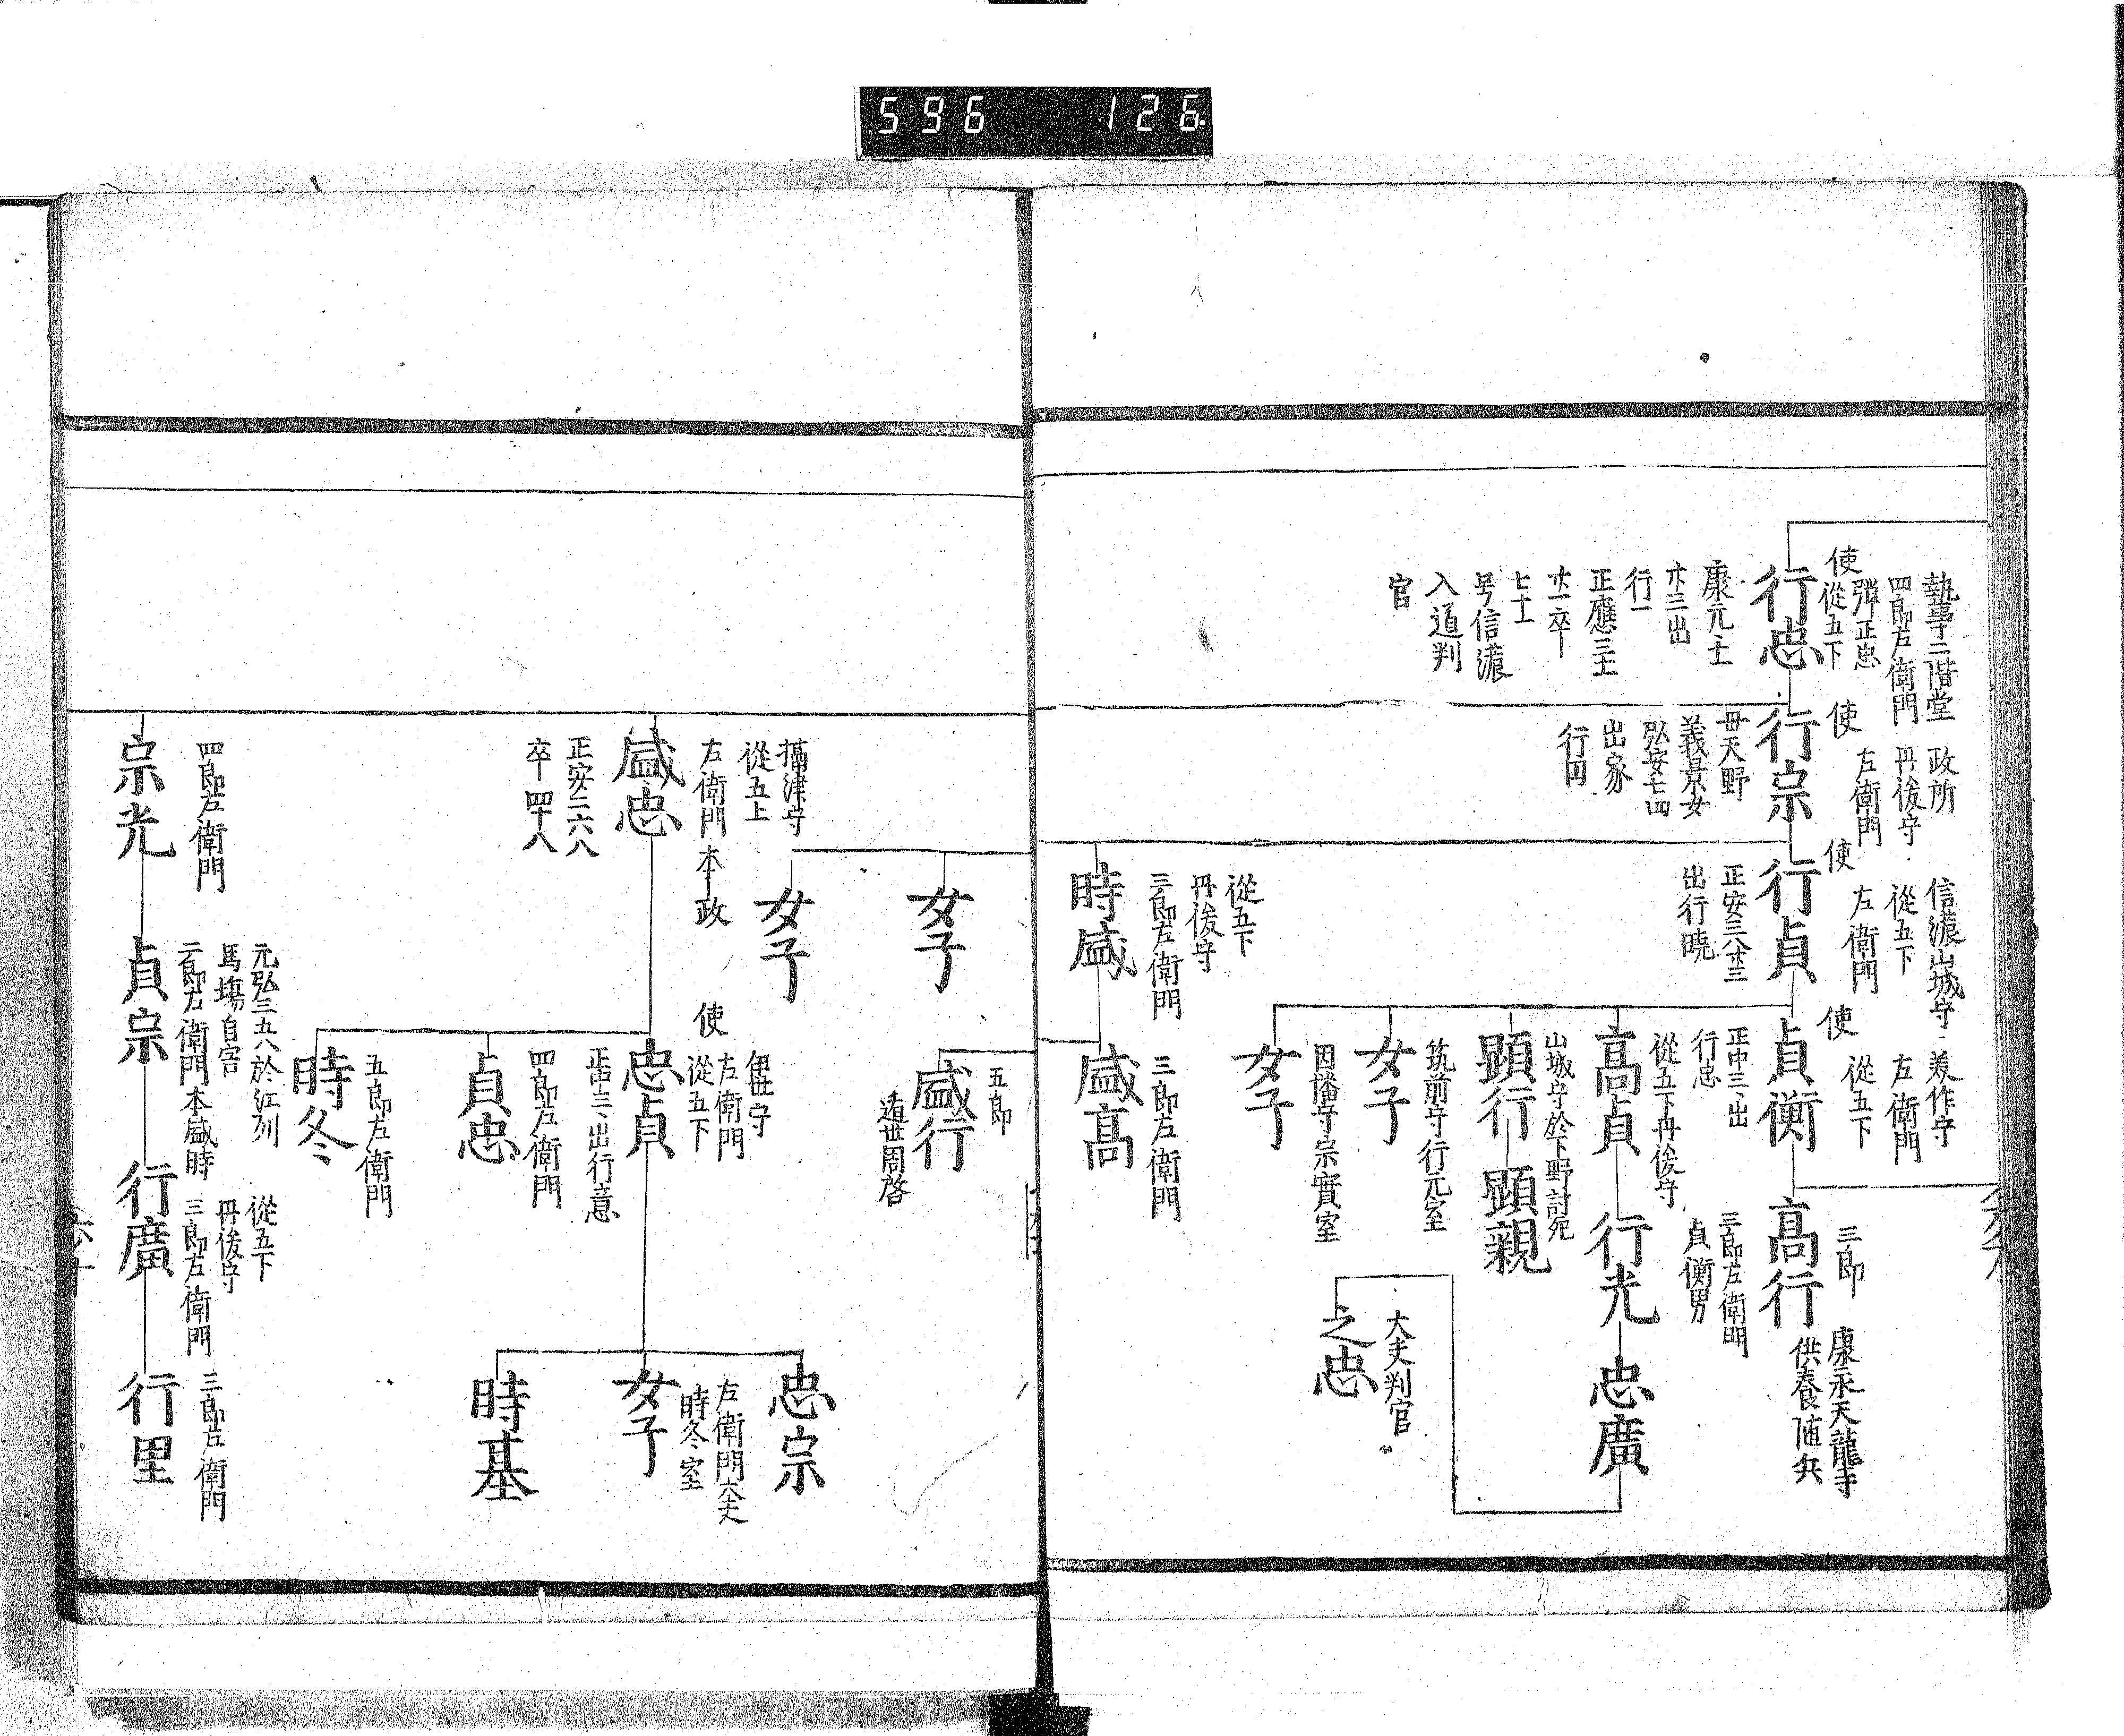 596 126
執事二階堂
四郎左衛門
弾正忠
使從五下
行忠
康元士
廿三出
行一
正應三士
廿一卒
七十一
号信濃
入道判
官
政所
丹後守
左衛門
使
行宗
母天野
義景女
弘安七四
出家
行円
信濃山城守
從五下
左衛門
使
行貞
正安三八廿三
出行曉
美作守
左衛門
從五下
使
貞衡
正中三、出
行忠
三郎
高行
康永天龍寺
供養随兵
從五下丹後守
高貞
三郎左衛門
貞衡男
行光
忠廣
大夫判官
之忠
山城守於下野討死
顕行
顕親
筑前守行元室
女子
因幡守宗實室
女子
從五下
丹後守
三郎左衛門
時盛
三郎左衛門
盛高
五郎
盛行
遁世周啓
女子
女子
攝津守
從五上
左衛門
本政
盛忠
正安二六八
卒四十八
伊世守
左衛門
從五下
使
忠貞
正中三、出行意
忠宗
左衛門大夫
時冬室
女子
時基
四郎左衛門
貞忠
五郎左衛門
時冬
四郎左衛門
宗光
元弘三五八於江刕
馬塲自害
二郎左衛門本盛時
貞宗
從五下
丹後守
三郎左衛門
行廣
三郎左衛門
行里